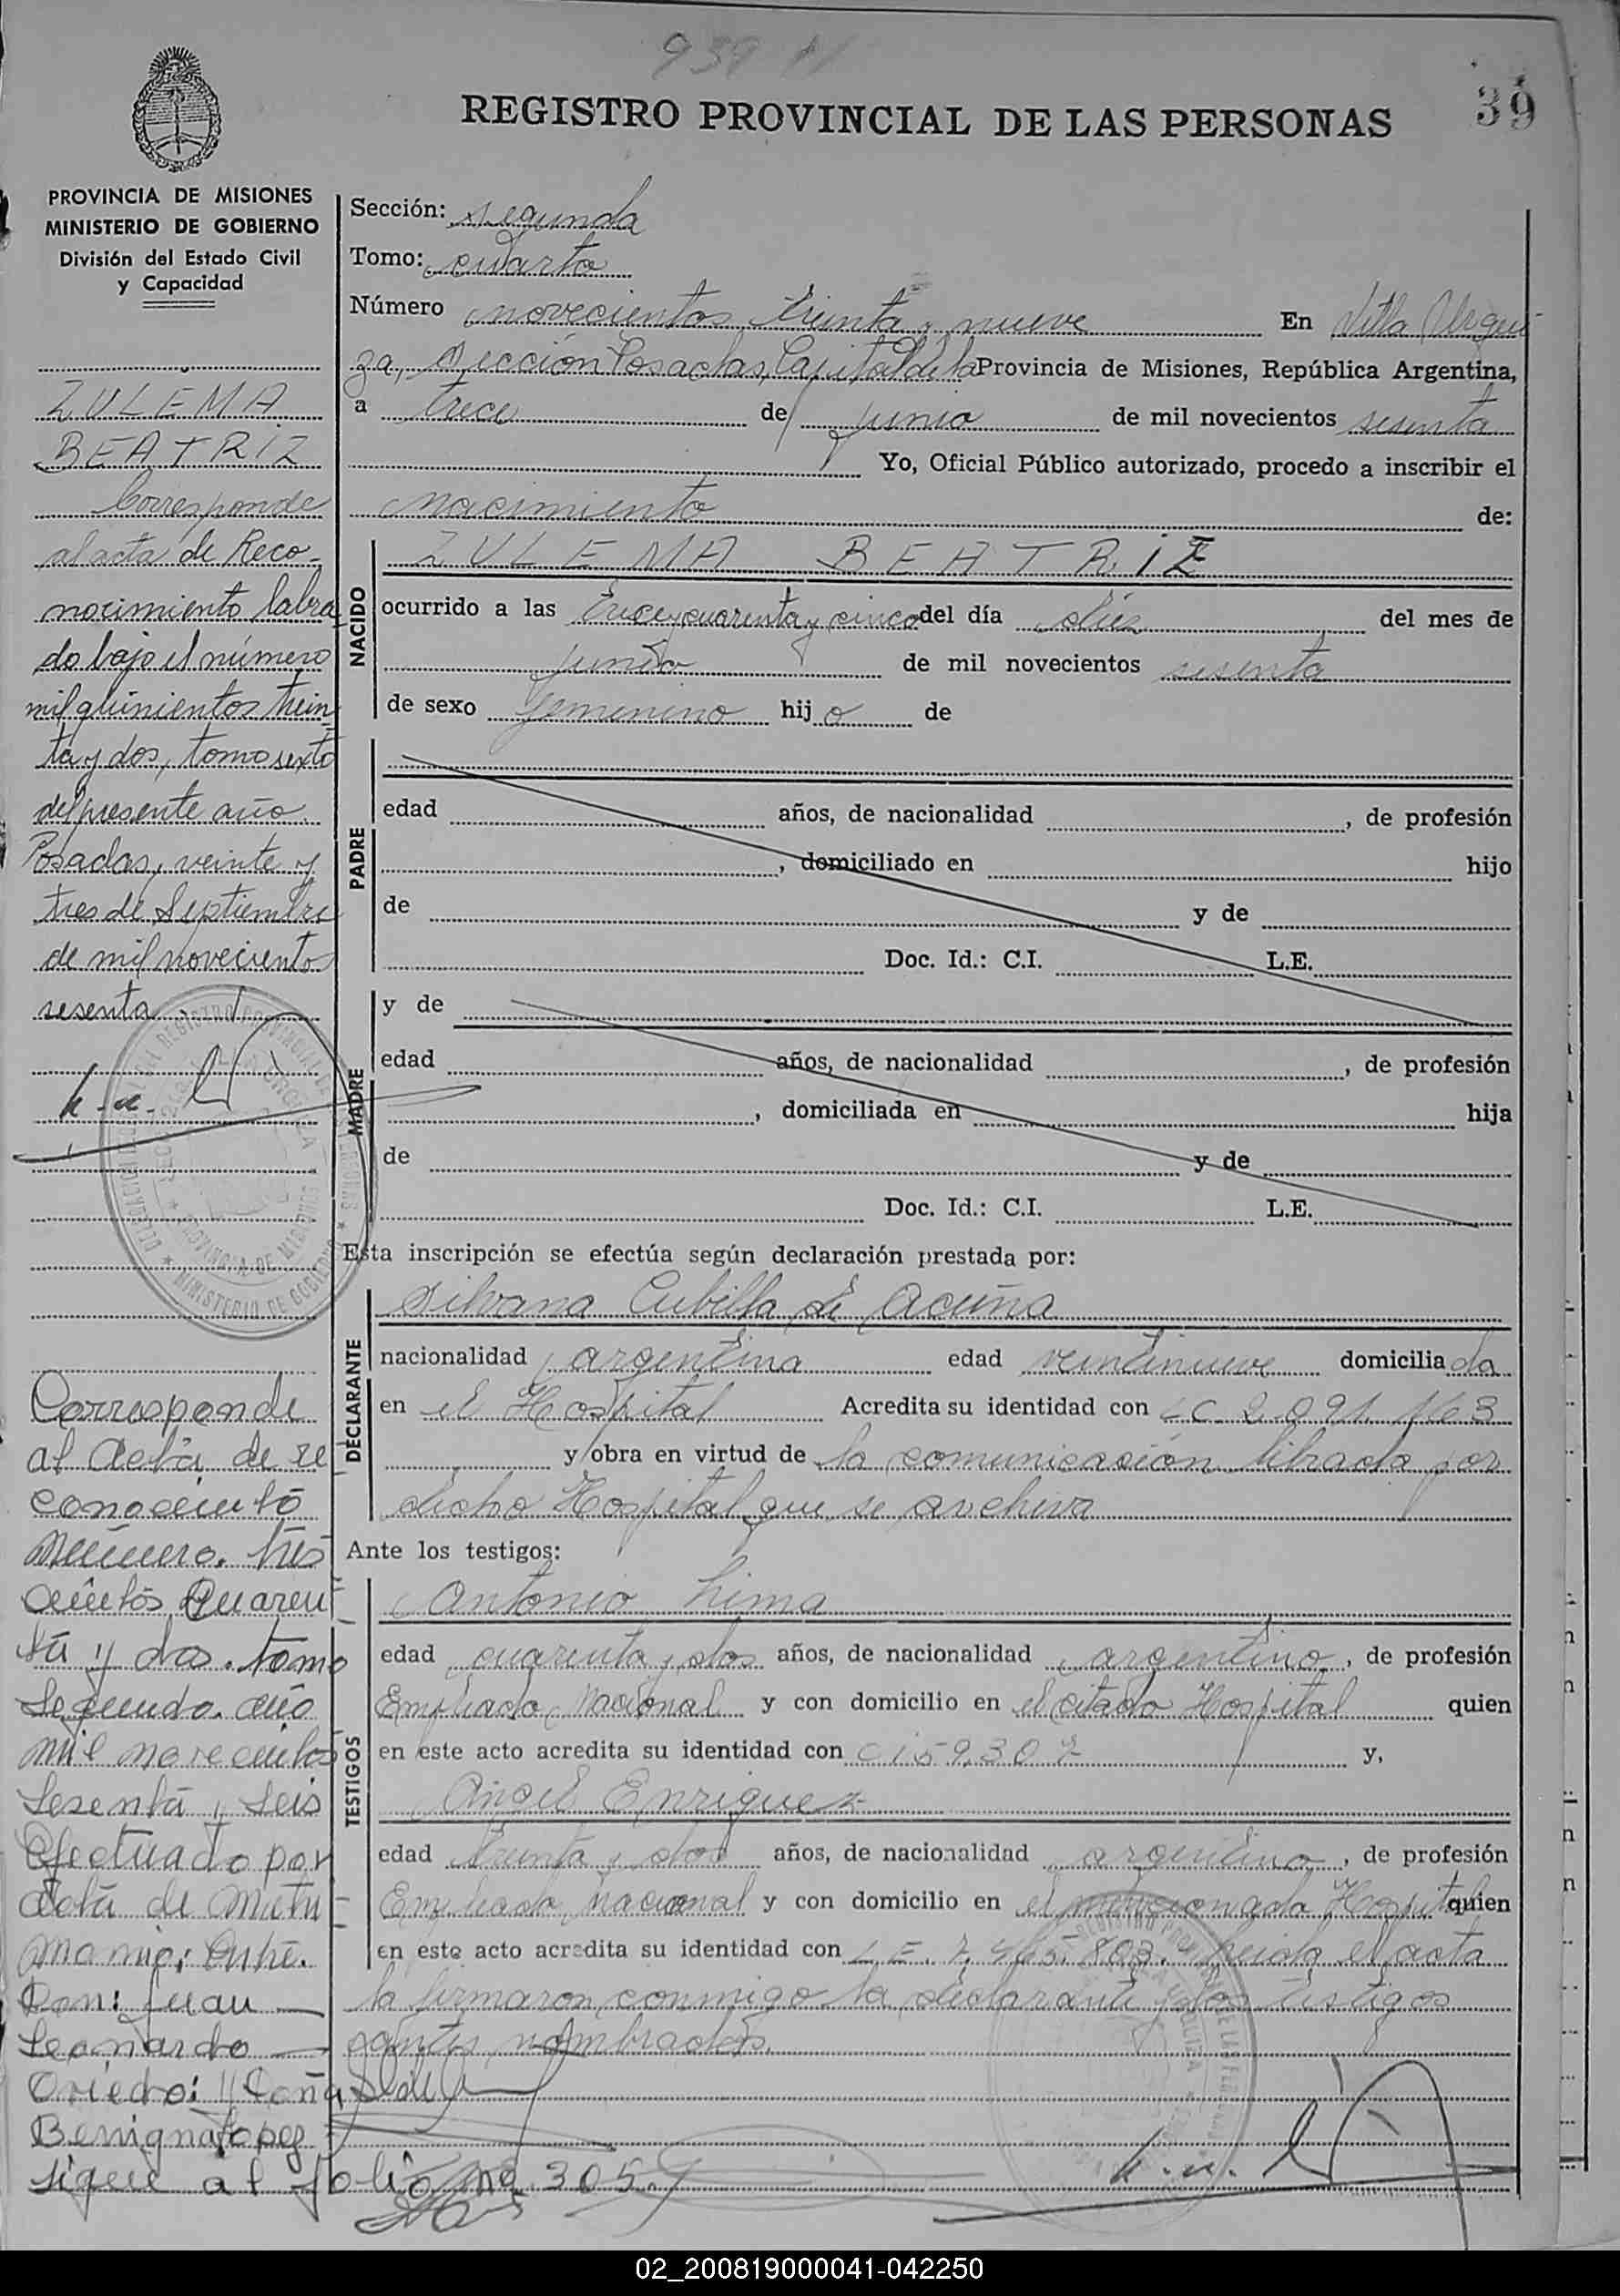 939 N
39
REGISTRO PROVINCIAL DE LAS PERSONAS
PROVINCIA DE MISIONES
MINISTERIO DE GOBIERNO
División del Estado Civil
y Capacidad
ZULEMA
BEATRIZ
Corresponde
al acta de Reco-
nocimiento labra
do bajo el número
mil quinientos trein
ta y dos, tomo sexto
del presente año.
Posadas, veinte y
tres de Septiembre
de mil noveciento
sesenta.
Corresponde
al Acta de re
conocimto
Número. tres
cientos, Quaren
ta y dos. tomo
Segundo. año
mil novecientos
Sesenta y Seis
Efectuado por
Acta de Matri
monio; Entre.
Don: Juan —
Leonardo —
Oviedo: y Doña
Benigna Lopez
sigue al folio no. 305.
Sección: segunda
Tomo: cuarto
Número novecientos treinta y nueve En Villa Urqui
za, Sección Posadas, Capital de la Provincia de Misiones, República Argentina,
a trece de junio de mil novecientos sesenta
Yo, Oficial Público autorizado, procedo a inscribir el
nacimiento de:
NACIDO
ZULEMA BEATRIZ
ocurrido a las trece y cuarenta y cinco del día diez del mes de
junio de mil novecientos sesenta
de sexo femenino hijo de
PADRE
edad años, de nacionalidad , de profesión
, domiciliado en hijo
de y de
Doc. Id.: C.I. L.E.
MADRE
y de
edad años, de nacionalidad , de profesión
, domiciliada en hija
de y de
Doc. Id.: C.I. L.E.
Esta inscripción se efectúa según declaración prestada por:
DECLARANTE
Silvana Cubilla de Acuña
nacionalidad argentina edad veintinueve domiciliada
en el Hospital Acredita su identidad con LC 2.091.163
y obra en virtud de la comunicación librada por
dicho Hospital que se archiva
Ante los testigos:
TESTIGOS
Antonio Lima
edad cuarenta y dos años, de nacionalidad argentino, de profesión
Empleado Nacional y con domicilio en el citado Hospital quien
en este acto acredita su identidad con CI 59.307 y,
Angel Enriquez
edad treinta y dos años, de nacionalidad argentino, de profesión
Empleado nacional y con domicilio en el mencionado Hospital quien
en este acto acredita su identidad con L.E. 7.465.803. Leida el acta
la firmaron conmigo la declarante y los testigos
antes nombrados.
02_200819000041-042250